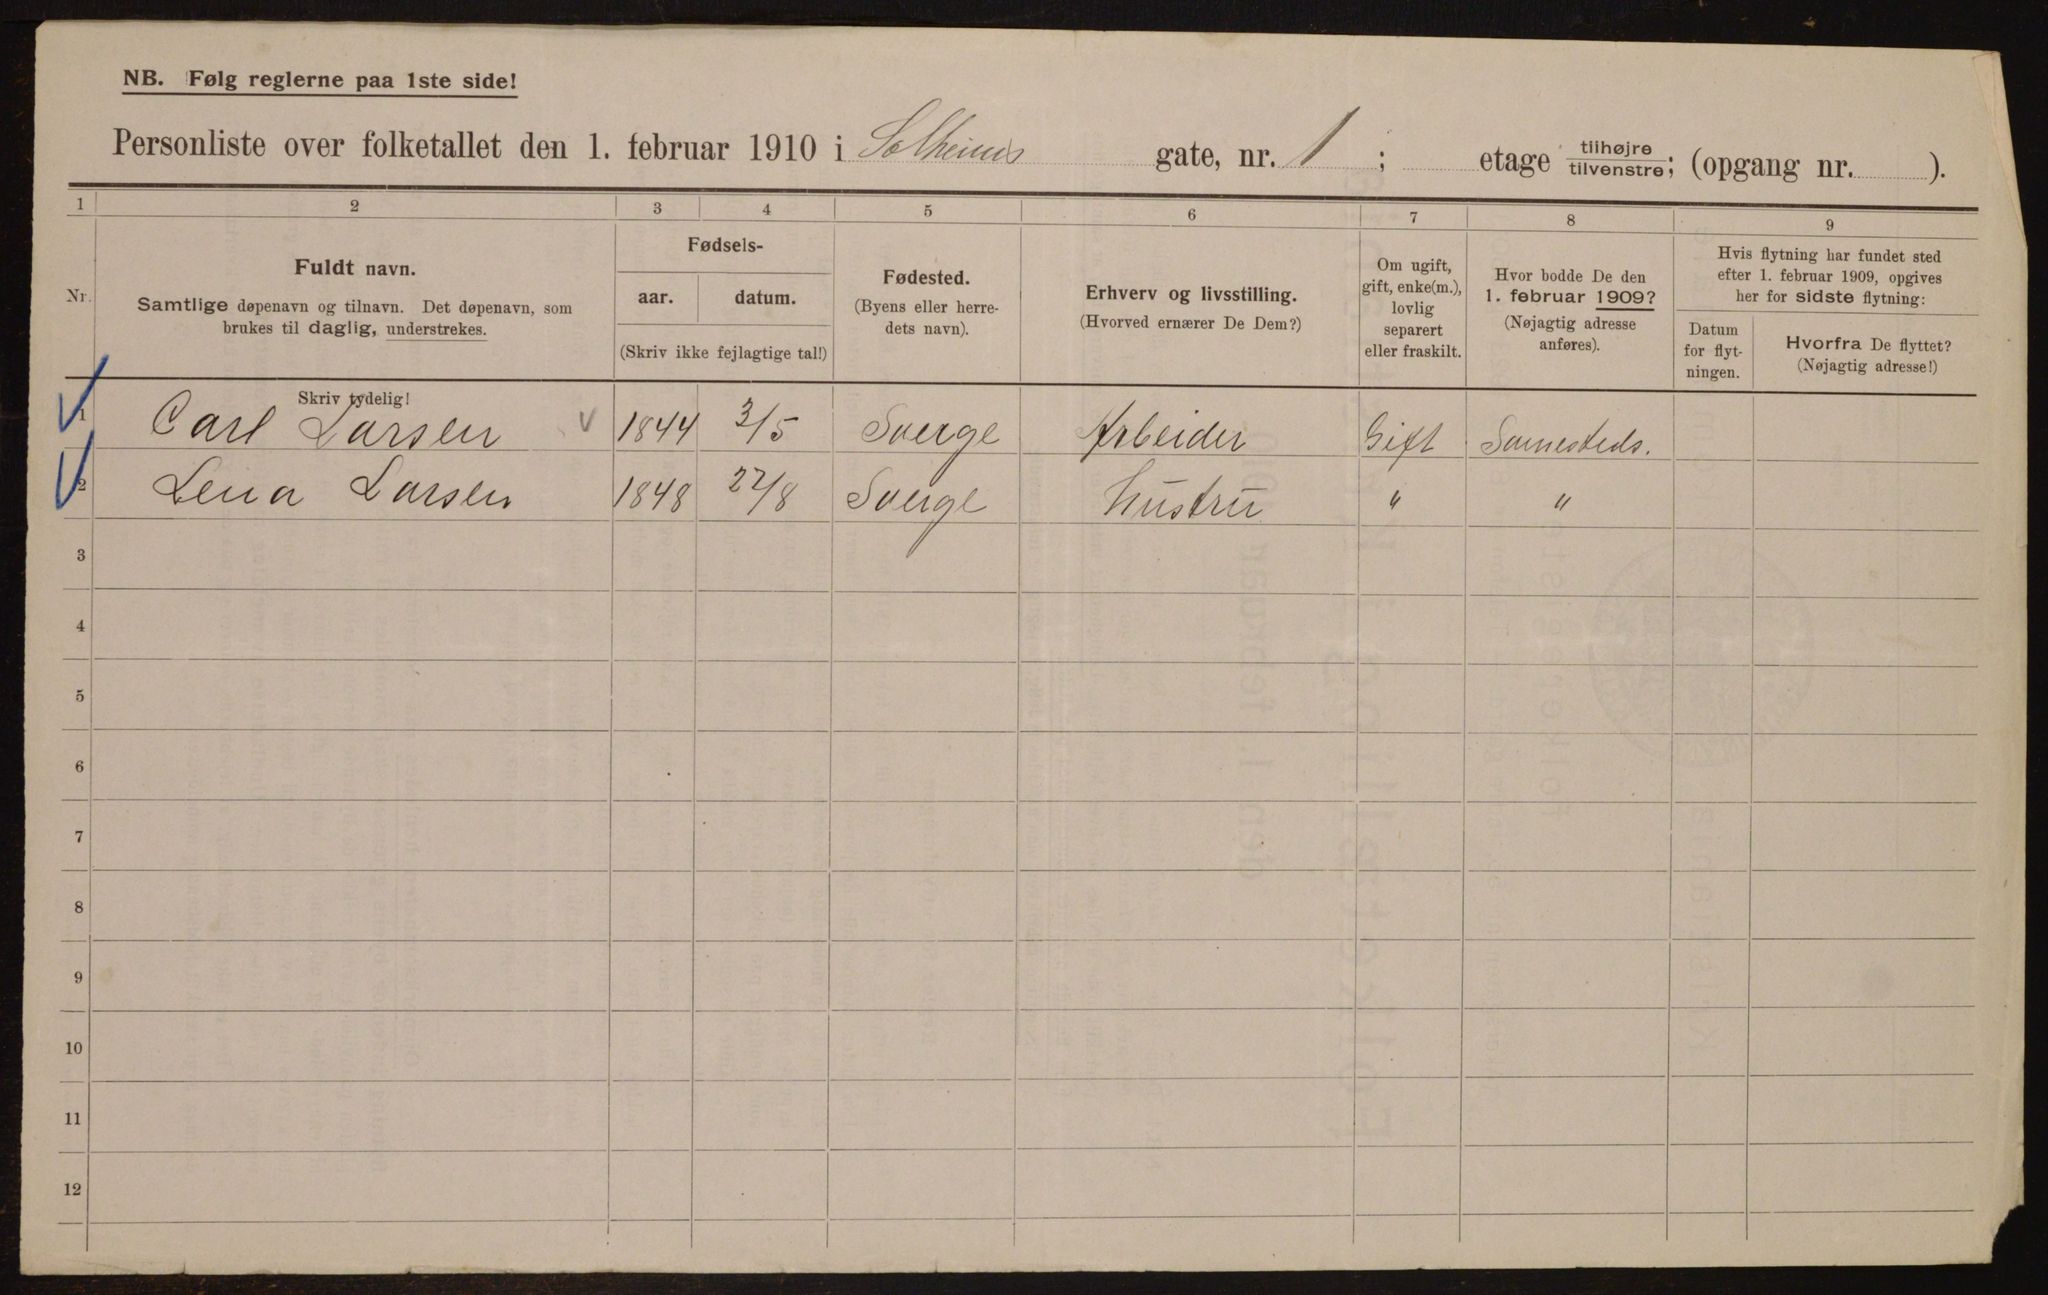 NB. Følg reglerne paa 1ste side!
Personliste over folketallet den 1. februar 1910 i Solheims gate, nr. 1; etage tilhøjre/tilvenstre; (opgang nr. ).
1 2 3 4 5 6 7 8 9
Nr.
Fuldt navn.
Samtlige døpenavn og tilnavn. Det døpenavn, som
brukes til daglig, understrekes.
Fødsels-
aar. datum.
(Skriv ikke fejlagtige tal!)
Fødested.
(Byens eller herre-
dets navn).
Erhverv og livsstilling.
(Hvorved ernærer De Dem?)
Om ugift,
gift, enke(m.),
lovlig
separert
eller fraskilt.
Hvor bodde De den
1. februar 1909?
(Nøjagtig adresse
anføres).
Hvis flytning har fundet sted
efter 1. februar 1909, opgives
her for sidste flytning:
Datum
for flyt-
ningen.
Hvorfra De flyttet?
(Nøjagtig adresse!)
Skriv tydelig!
1 Carl Larsen 1844 3/5 Sverge Arbeider Gift Samesteds.
2 Lena Larsen 1848 27/8 Sverge Hustru " "
3
4
5
6
7
8
9
10
11
12